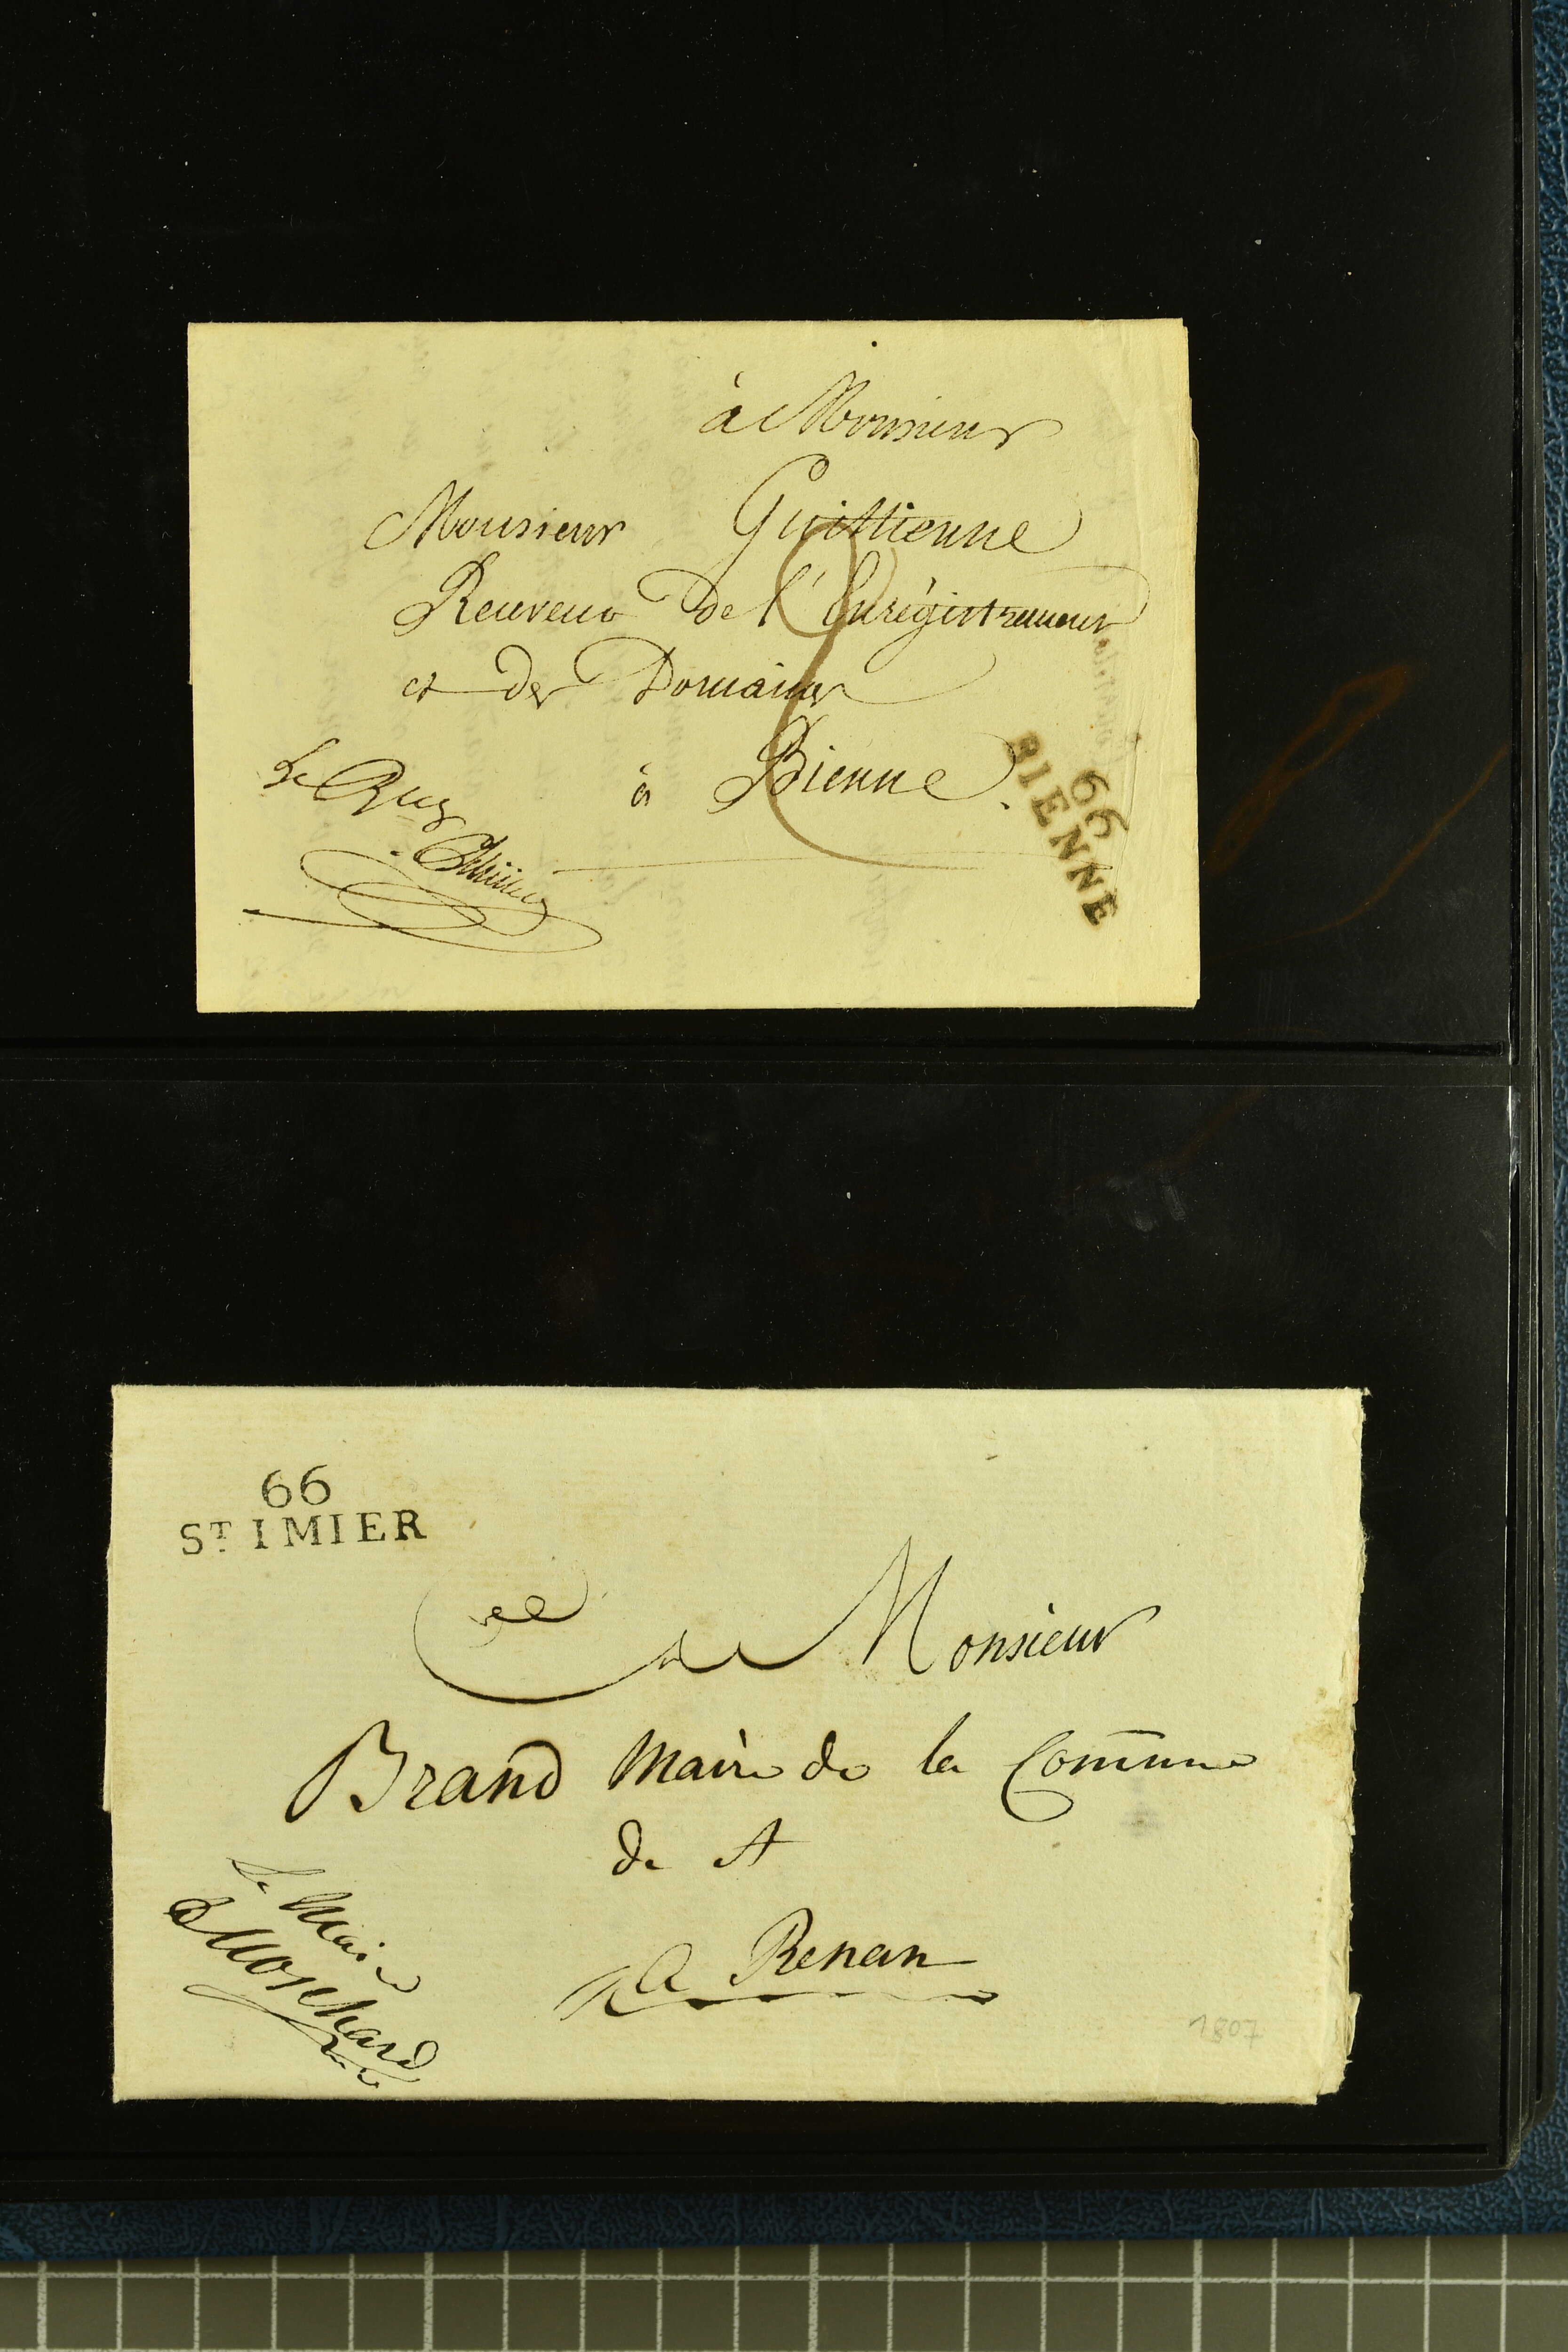 à Monsieur
Monsieur Guittienne
Receveur de l'Enregistrement
et des Domaines
à Bienne.
66
BIENNE
66
ST IMIER
A Monsieur
Brand Maire de la Com̄une
de et
a Renan
Le Maire
Moschard
1807